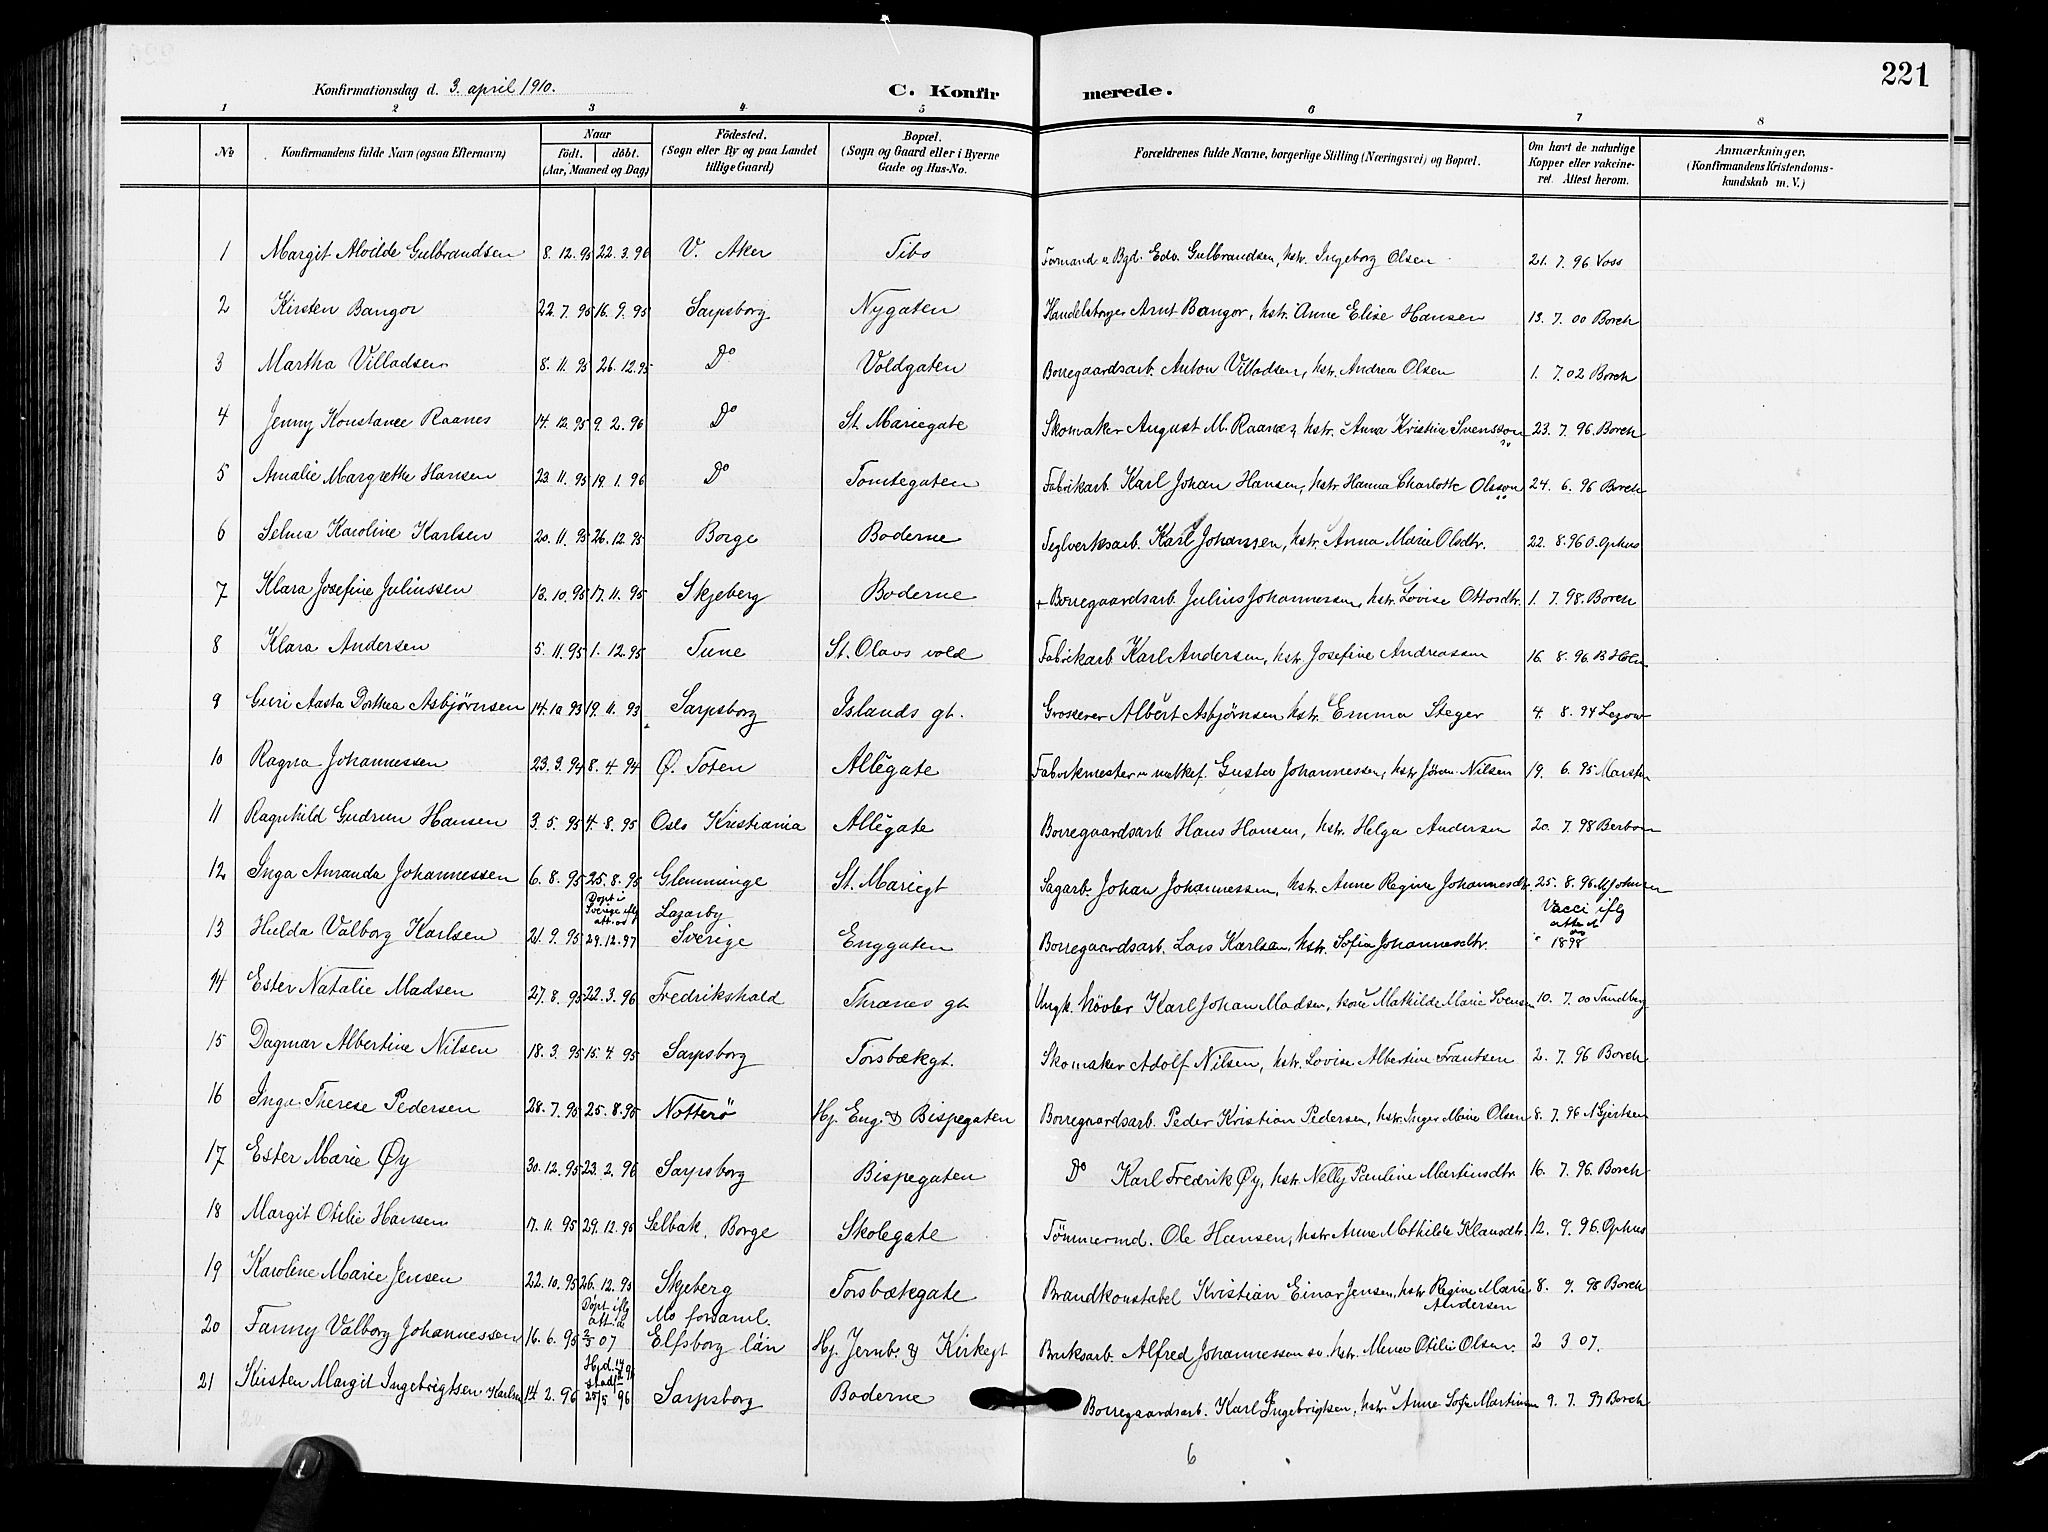 221
Konfirmationsdag d. 3. april 1910.
C. Konfirmerede.
1 2 3 4 5 6 7 8
No
Konfirmandens fulde Navn (ogsaa Efternavn)
Naar
født. døbt.
(Aar, Maaned og Dag)
Födested.
(Sogn eller By og paa Landet
tillige Gaard)
Bopæl.
(Sogn og Gaard eller i Byerne
Gade og Hus-No.
Forældrenes fulde Navne, borgerlige Stilling (Næringsvei) og Bopæl.
Om havt de naturlige
Kopper eller vakcine-
ret. Attest herom.
Anmærkninger.
(Konfirmandens Kristendoms-
kundskab m. V.)
1 Margit Alvilde Gulbrandsen 8. 12. 95 22. 3. 96 V. Aker Tibo Formand v Bgd. Edv. Gulbrandsen, hstr. Ingeborg Olsen 21. 7. 96 Voss
2 Kirsten Bangor 22. 7. 95 16. 9. 95 Sarpsborg Nygaten Handelsborger Arnt Bangor, hstr. Anne Elise Hansen 13. 7. 00 Borch
3 Martha Villadsen 8. 11. 95 26. 12. 95 Do Voldgaten Borregaardsarb. Anton Villadsen, hstr. Andrea Olsen 1. 7. 02 Borch
4 Jenny Konstance Raanes 14. 12. 95 9. 2. 96 Do St. Mariegate Skomaker August M. Raanes, hstr. Anna Kristine Svensson 23. 7. 96. Borch
5 Amalie Margrethe Hansen 23. 11. 95 19. 1. 96 Do Tomtegaten Fabrikarb. Karl Johan Hansen, hstr. Hanna Charlotte Olsson 24. 6. 96 Borch
6 Selma Karoline Karlsen 20. 11. 95 26. 12. 95 Borge Boderne Teglverksarb. Karl Johansen, hstr. Anna Marie Olsdtr. 22. 8. 96 O. Ophus
7 Klara Josefine Juliussen 13. 10. 95 17. 11. 95 Skjeberg Boderne + Borregaardsarb. Julius Johannessen, hstr. Lovise Ottosdtr. 1. 7. 98. Borch
8 Klara Andersen 5. 11. 95 1. 12. 95 Tune St. Olavs vold Fabrikarb. Karl Andersen, hstr. Josefine Andreassen 16. 8. 96. B Holm
9 Guri Aasta Dorthea Asbjørnsen 14. 10 93 19. 11. 93 Sarpsborg Islands gt. Grosserer Albert Asbjørnsen hstr. Emma Steger 4. 8. 94
10 Ragna Johannessen 23. 3. 94 8. 4. 94 Ø. Toten Allégate Fabrikmester Gustav Johannessen, hstr Jøran Nilsen 19. 6. 95
11 Ragnhild Gudrun Hansen 3. 5. 95 4. 8. 95 Oslo Kristiania Allégate Borregaardsarb Hans Hansen, hstr. Helga Andersen 20. 7. 98
12 Inga Amanda Johannessen 6. 8. 95 25. 8. 95 Glemminge St. Mariegt Sagarb. Johan Johannessen, hstr. Anne Regine Johannesdtr. 25. 8. 96
Døpt i
Sverige iflg
att. av
13 Hulda Valborg Karlsen 21. 9. 95 29. 12. 97 Sverige Enggaten Borregaardsarb. Lars Karlsen, hstr. Sofia Johannesdtr. Vacci iflg
1898
14 Ester Natalie Madsen 27. 8. 95 22. 3. 96 Fredrikshald Thranes gt Ungk. Høvler Karl Johan Madsen, Mathilde Marie Svensen 10. 7. 00 Tandberg
15 Dagmar Albertine Nilsen 18. 3. 95 15. 4. 95 Sarpsborg Torsbækgt. Skomaker Adolf Nilsen, hstr. Lovise Albertine Frantsen 2. 7. 96 Borch
16 Inga Therese Pedersen 28. 7. 95 25. 8. 95 Nøtterö Hj. Eng. & Bispegaten Borregaardsarb. Peder Kristian Pedersen, hstr. Inger Marie Olsen 8. 7. 96 N Gjertsen
17 Ester Marie Øy 30. 12. 95 23. 2. 96 Sarpsborg Bispegaten Do Karl Fredrik Øy, hstr. Nelly Pauline Martinsdtr. 16. 7. 96. Borch
18 Margit Otilie Hansen 17. 11. 95 29. 12. 95 Selbak, Borge Skolegate Tömmermd. Ole Hansen, hstr. Anne Mathilde Klausdtr. 12. 9. 96. Ophus
19 Karoline Marie Jensen 22. 10. 95 26. 12. 95 Skjeberg Torsbækgate Brandkonstabel Kristian Einar Jensen, hstr Regine Marie
Andersen 8. 9. 98 Borch
Døpt iflg Mo forsaml.
20 Fanny Valborg Johannessen 16. 6. 95 07 Elfsborg län Hj. Jernb. & Kirkegt Bruksarb. Alfred Johannessen hstr. Otilie Olsen. 2 3 07.
21 Kirsten Margit Ingebrigtsen Karlsen 14 2. 96 25/5 96 Sarpsborg Boderne Borregaardsarb. Karl Ingebrigtsen, hstr. Anne Sofie Martinsen 9. 7. 97 Borch
6